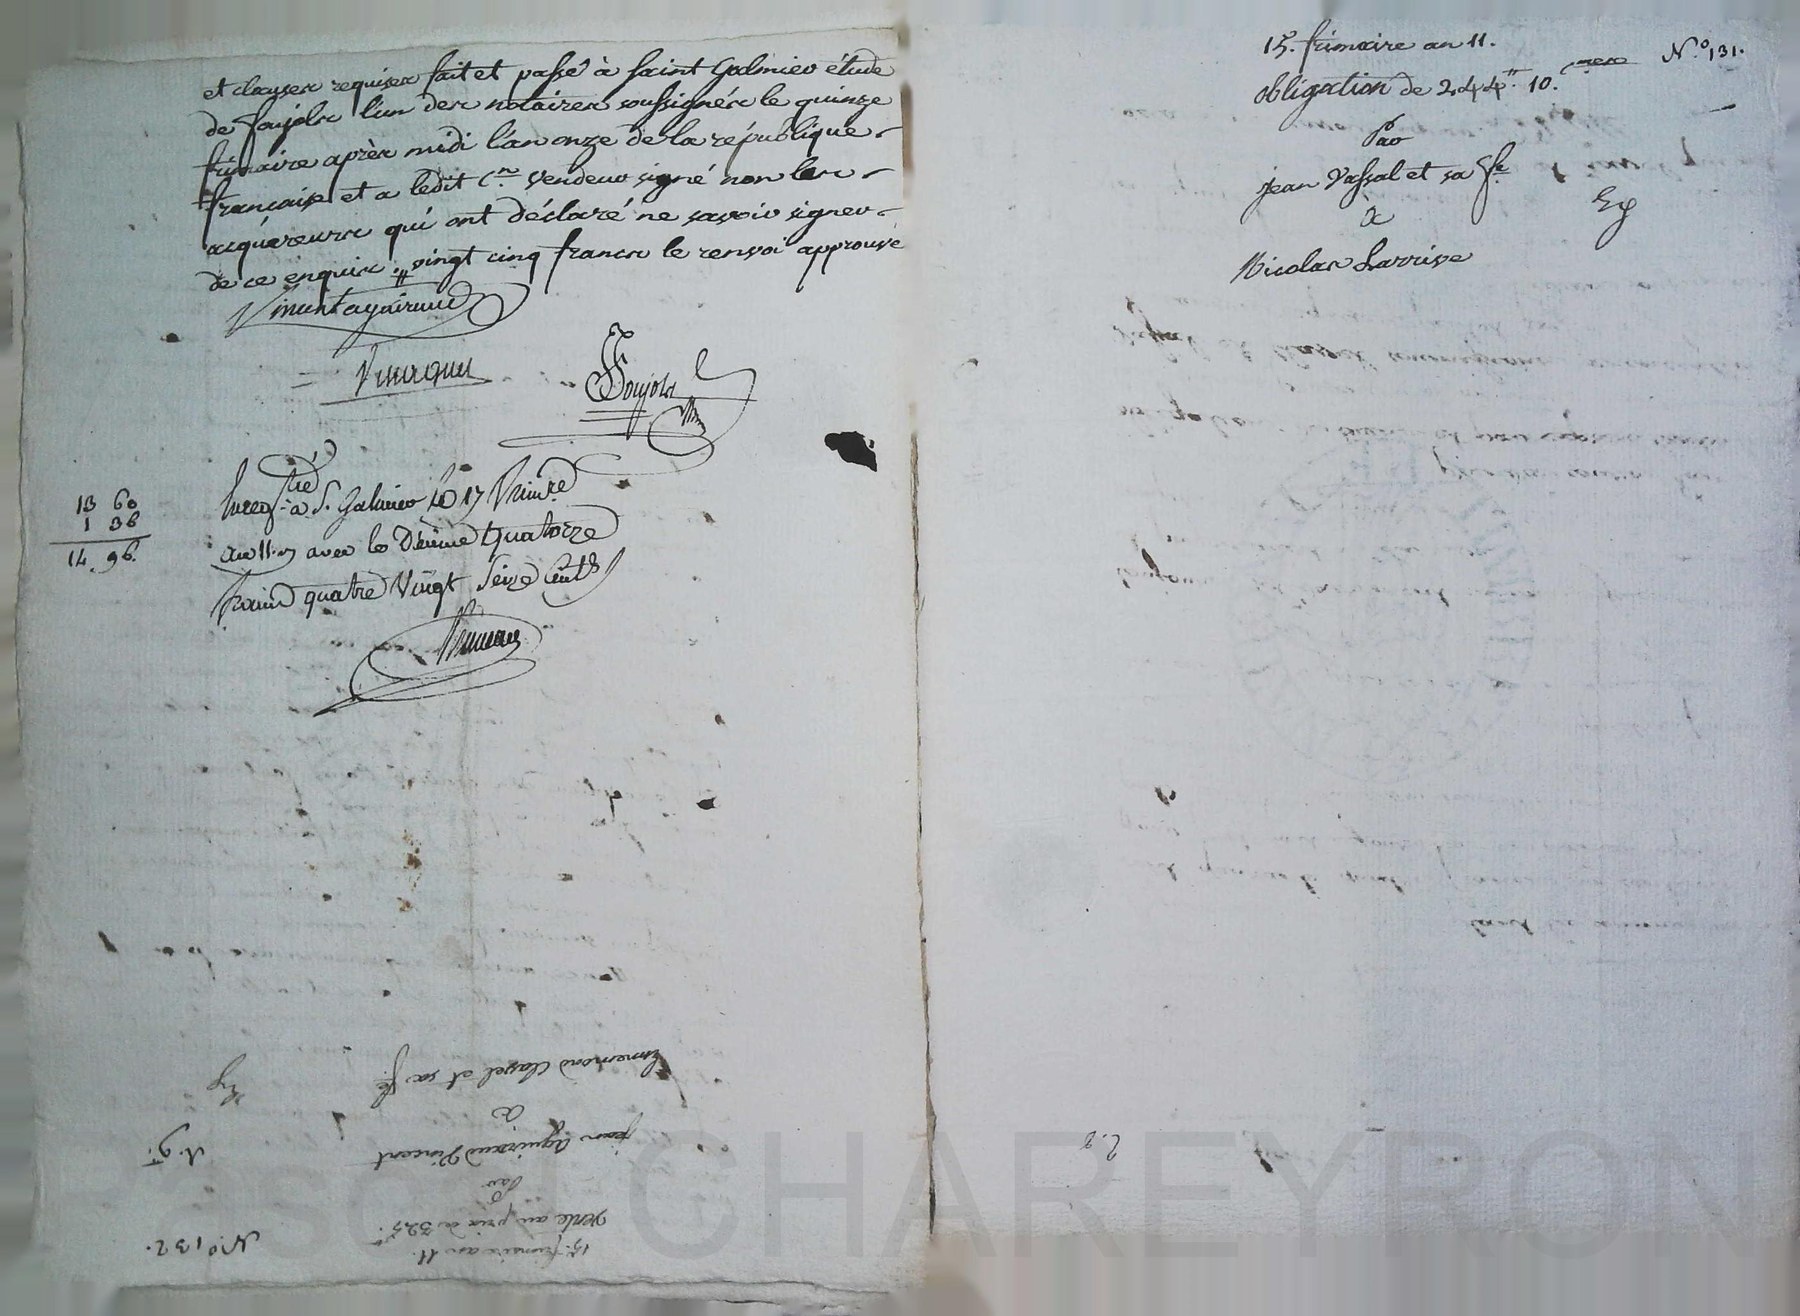 et clauses requises fait et passé à Saint Galmier étude
de Foujols l'un des notaires soussignés le quinze
frimaire après midi l'an onze de la république
française et a ledit c.en vendeur signé non les
acquéreurs qui ont déclaré ne savoir signer
de ce enquis. vingt cinq francs le renvoi approuvé
Foujols
13 60
1 36
14. 96.
à St. Galmier le 17 frimre
an 11. avec le Décime quatorze
francs quatre Vingt Seize Cents
Ennemond Clavel et sa fe
à
jean Aguiraud Vincent
Par
vente au prix de 325
15. frimaire an 11.
N.o 132.
Ey
15. frimaire an 11.
N.o 131.
obligation de 244.tt 10.
Par
jean Vassal et sa fe
à
Nicolas Larrive
Ey
Pascal CHAREYRON